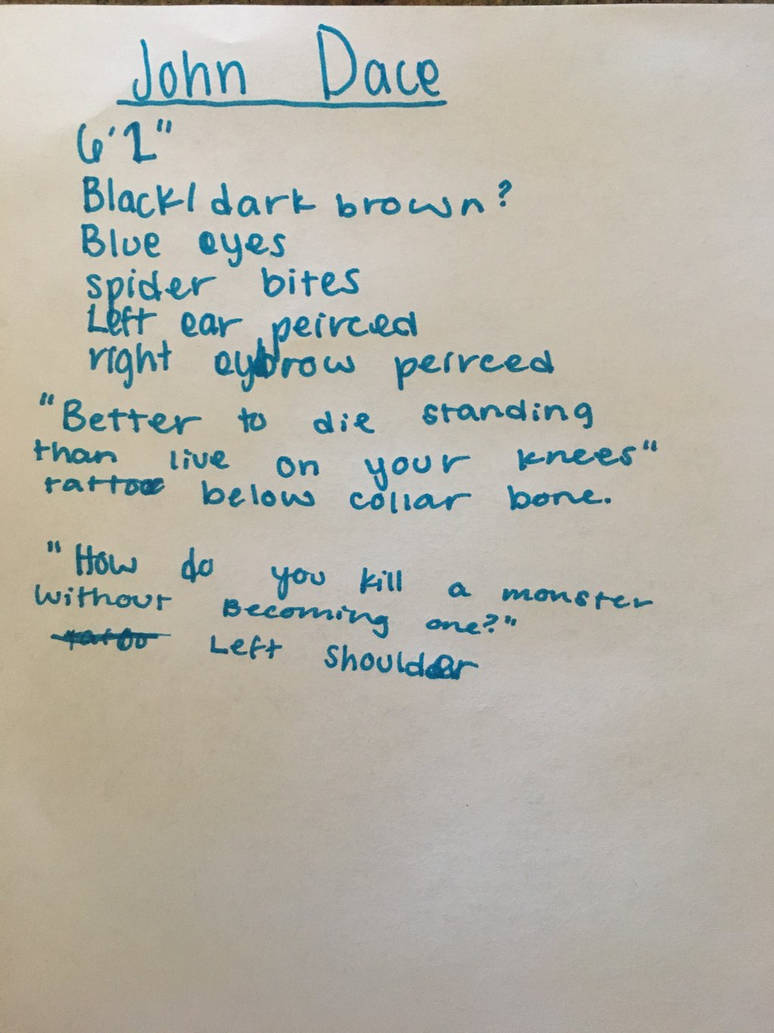 John Dace
6'2"
Black/dark brown?
Blue eyes
spider bites
Left ear peirced
right eyebrow peirced
"Better to die standing
than live on your knees"
tattoo below collar bone.
"How do you kill a monster
without Becoming one?"
tattoo Left shoulder